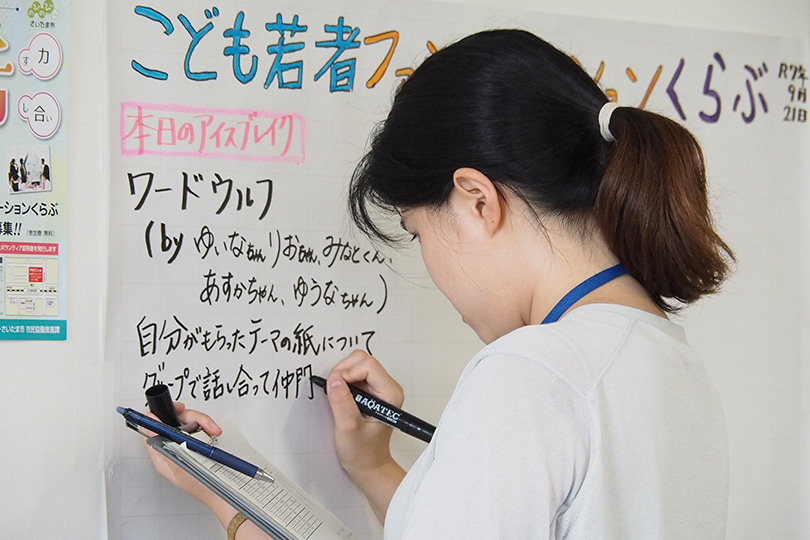 こども若者ファ ションくらぶ
R7年
9月
21日
本日のアイスブレイク
ワードウルフ
(by ゆいなちゃん りおちゃん、みなとくん、
あすかちゃん、ゆうなちゃん)
自分がもらったテーマの紙について
グループで話し合って仲間
BAQATEC
さいたま市
力
す
合
し
い
ーションくらぶ
募集!!
さいたま市 市民協働推進課